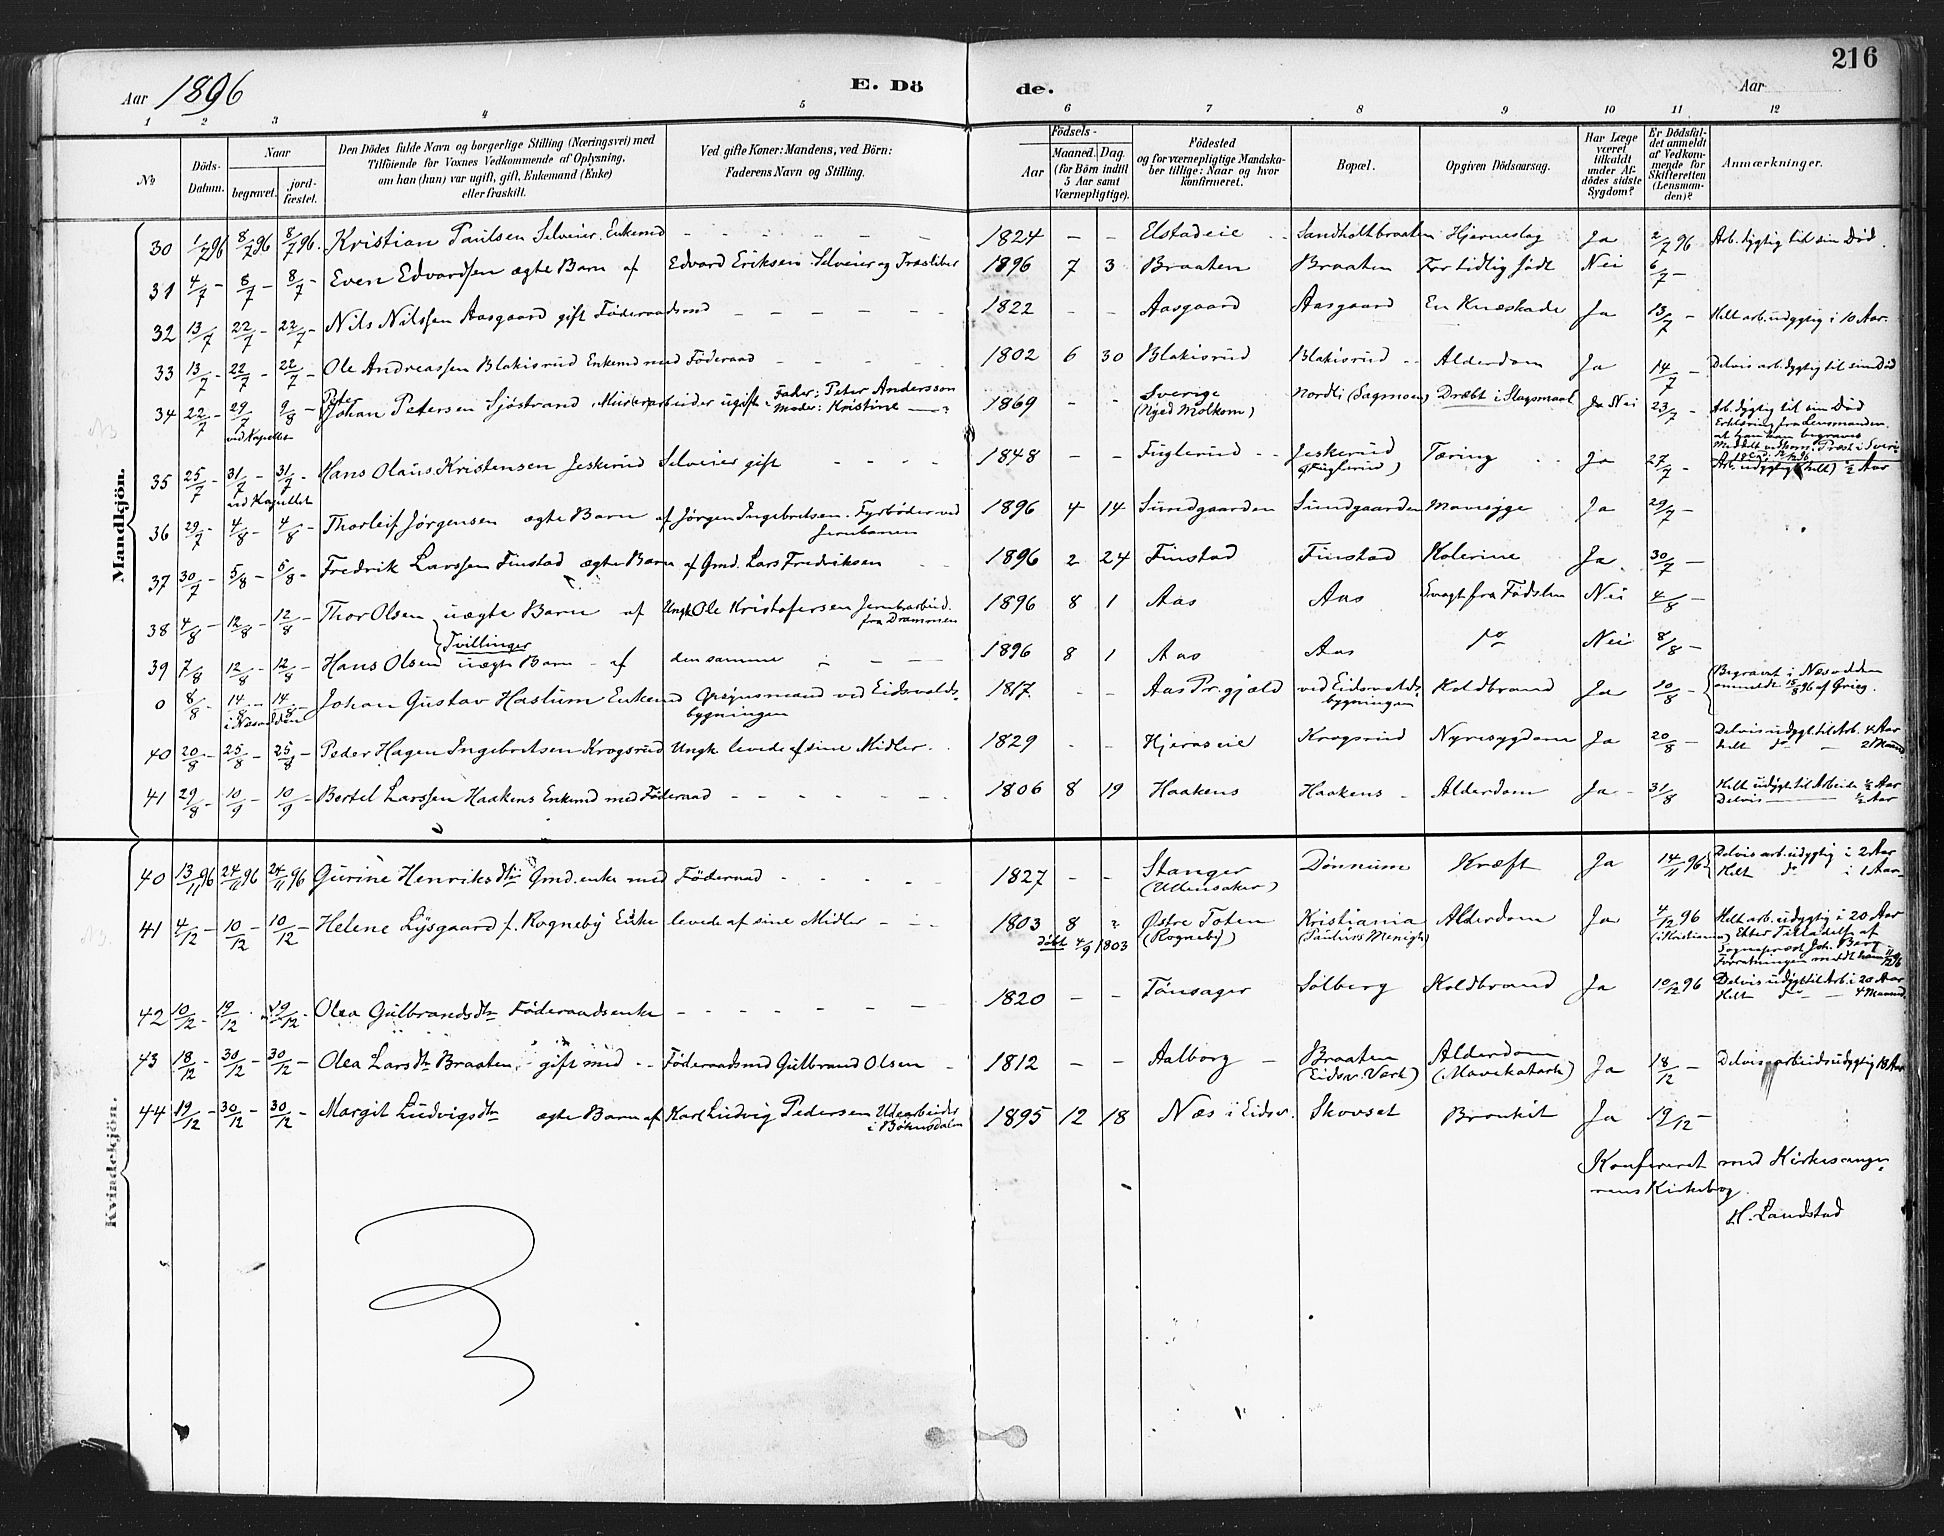 216
Aar 1896
E. Dö de.
Aar
1 2 3 4 5 6 7 8 9 10 11 12
№
Döds-Datum.
Naar
begravet.
jord-fæstet.
Den Dödes fulde Navn og borgerlige Stilling (Næringsvei) med
Tilföiende for Voxnes Vedkommende af Oplysning,
om han (hun) var ugift, gift, Enkemand (Enke)
eller fraskilt.
Ved gifte Koner: Mandens, ved Börn:
Faderens Navn og Stilling.
Födsels-
Aar
Maaned. Dag.
(for Börn indtil
5 Aar samt
Værnepligtige).
Födested
og for værnepligtige Mandska-
ber tillige: Naar og hvor
konfirmeret.
Bopæl.
Opgiven Dödsaarsag.
Har Læge
været
tilkaldt
under Af-
dödes sidste
Sygdom?
Er Dödsfal-
det anmeldt
af Vedkom-
mende for
Skifteretten
(Lensman-
den)?
Anmærkninger.
Mandkjön.
30 1/7 96 8/7 96 8/7 96. Kristian Paulsen Selveier. Enkemd – – – – – – 1824 – – Elstadeie Sandholtbraaten Hjerneslag Ja 2/7 96 Arb. dygtig til sin Død.
31 4/7 – 8/7 – 8/7 – Even Edvardsen ægte Barn af Edvard Eriksen Selveier og Træsliber 1896 7 3 Braaten Braaten For tidlig født Nei 6/7 –
32 13/7 – 22/7 – 22/7 – Nils Nilssen Aasgaard gift Føderaadsmd – – – – – 1822 – – Aasgaard Aasgaard En Knæskade Ja 13/7 – Helt arb. udygtig i 10 Aar.
33 13/7 – 22/7 – 22/7 – Ole Andreassen Blakisrud Enkemd med Føderaad – – – – 1802 6 30 Blakisrud Blakisrud Alderdom Ja 14/7 – Delvis arb. dygtig til sin Død
34 22/7 – 29/7 – 9/8 – Johan Petersen Sjöstrand, Murerarbeider ugift. Fader: Peter Andersson 1869 – – Sverige Nordli (Sagmoen) Dræbt i Slagsmaal Ja Nei 23/7 – Arb. dygtig til sin Død
ved Kapellet Moder: Kristine –"– (Nyed Molkom) Erklæring fra Lensmanden
at han kan begraves
35 25/7 – 31/7 – 31/7 – Hans Olaus Kristensen Jeskerud Selveier gift – – – – 1848 – – Fuglerud Jeskerud Tæring Ja 27/7 – Arb. udygtig (helt) ½ Aar
ved Kapellet (Fuglerud)
36 29/7 – 4/8 – 4/8 – Thorleif Jørgensen ægte Barn af Jørgen Ingebretsen. Fyrbøder ved 1896 4 14 Sundgaarden Sundgaarden Mavesyge Ja 29/7 –
Jernbanen
37 30/7 – 5/8 – 5/8 – Fredrik Larssen Finstad ægte Barn af Gmd. Lars Fredriksen 1896 2 24 Finstad Finstad Kolerine Ja 30/7 –
38 4/8 – 12/8 – 12/8 – Thor Olsen uægte Barn af Ungk Ole Kristofersen Jernbarbeid. 1896 8 1 Aas Aas Svagt fra Fødslen Nei 4/8 –
Tvillinger fra Drammen
39 7/8 – 12/8 – 12/8 – Hans Olsen uægte Barn – af den samme – – – 1896 8 1 Aas Aas do Nei 8/8 –
0 8/8 – 14/8 – 14/8 – Johan Gustav Haslum Enkemd Opsynsmand ved Eidsvolds- 1817 – – Aas Pr.gjæld ved Eidsvolds- Koldbrand Ja 10/8 – Begravet i Næsodden
i Næsodden bygningen bygningen anmeldt 15/8 96 af Grieg.
40 20/8 – 25/8 – 25/8 – Peder Hagen Ingebretsen Krogsrud Ungk levede af sine Midler – 1829 – – Hjeraseie Krogsrud Nyresygdom Ja 20/8 – Delvis udygt. til Arb. 4 Aar
helt do – 2 Maaned
41 29/8 – 10/9 – 10/9 – Bertel Larssen Haakens Enkemd med Føderaad – – – – – 1806 8 19 Haakens Haakens – Alderdom Ja – 31/8 Helt udygt. til Arbeide ½ Aar
Delvis ½ Aar
Kvindekjön.
40 13/11 96 24/11 96 24/11 96 Gurine Henriksdtr Gmd. enke med Føderaad – – – – 1827 – – Stanger Dønnum Kræft Ja 14/11 96 Delvis arb. udygtig i 2 Aar
(Ullensaker) Helt do i 1 Aar
41 4/12 – 10/12 – 10/12 – Helene Lysgaard f. Rogneby Enke levede af sine Midler – – – 1803 8 " Østre Toten Kristiania Alderdom Ja 4/12 96 Helt arb. udygtig i 20 Aar
døbt 4/9 1803 (Rogneby) (Paulus's Menigh) (i Kristiania) Efter Tilladelse af
Sogneprest Joh. Berg
42 10/12 – 19/12 – 19/12 – Olea Gulbrandsdtr Føderaadsenke – – – – – – 1820 – – Tønsager Solberg Koldbrand Ja 10/12 96 Delvis udygt. til Arb. i 20 Aar
Helt do – 4 Maaned.
43 18/12 – 30/12 – 30/12 – Olea Larsdtr Braaten, gift med – Føderaadsmd Gulbrand Olsen – 1812 – – Aalborg – Braaten Alderdom Ja 18/12 – Delvis arbeidsudygtig 18 Aar
(Eidsv. Værk) (Mavekatarh)
44 19/12 – 30/12 – 30/12 – Margit Ludvigsdtr ægte Barn af Karl Ludvig Pedersen Udearbeider 1895 12 18 Næs i Eidsv. Skovset Bronkit Ja 19/12 –
i Bøhnsdalen
Konfereret med Kirkesange-
rens Kirkebog.
H. Landstad